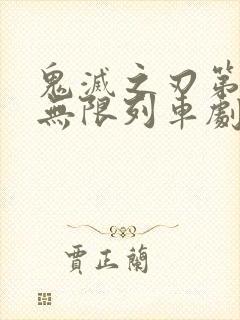 鬼滅之刃第
無限列車劇
賈正蘭